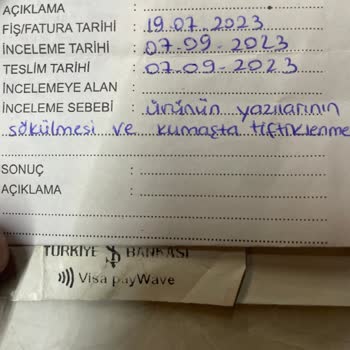 AÇIKLAMA :
FİŞ/FATURA TARİHİ : 19.07.2023
İNCELEME TARİHİ : 07-09-2023
TESLİM TARİHİ : 07-09-2023
İNCELEMEYE ALAN :
İNCELEME SEBEBİ : ürünün yazılarının
sökülmesi ve kumaşta tiftiklenme
SONUÇ :
AÇIKLAMA :
TÜRKİYE İŞ BANKASI
Visa payWave